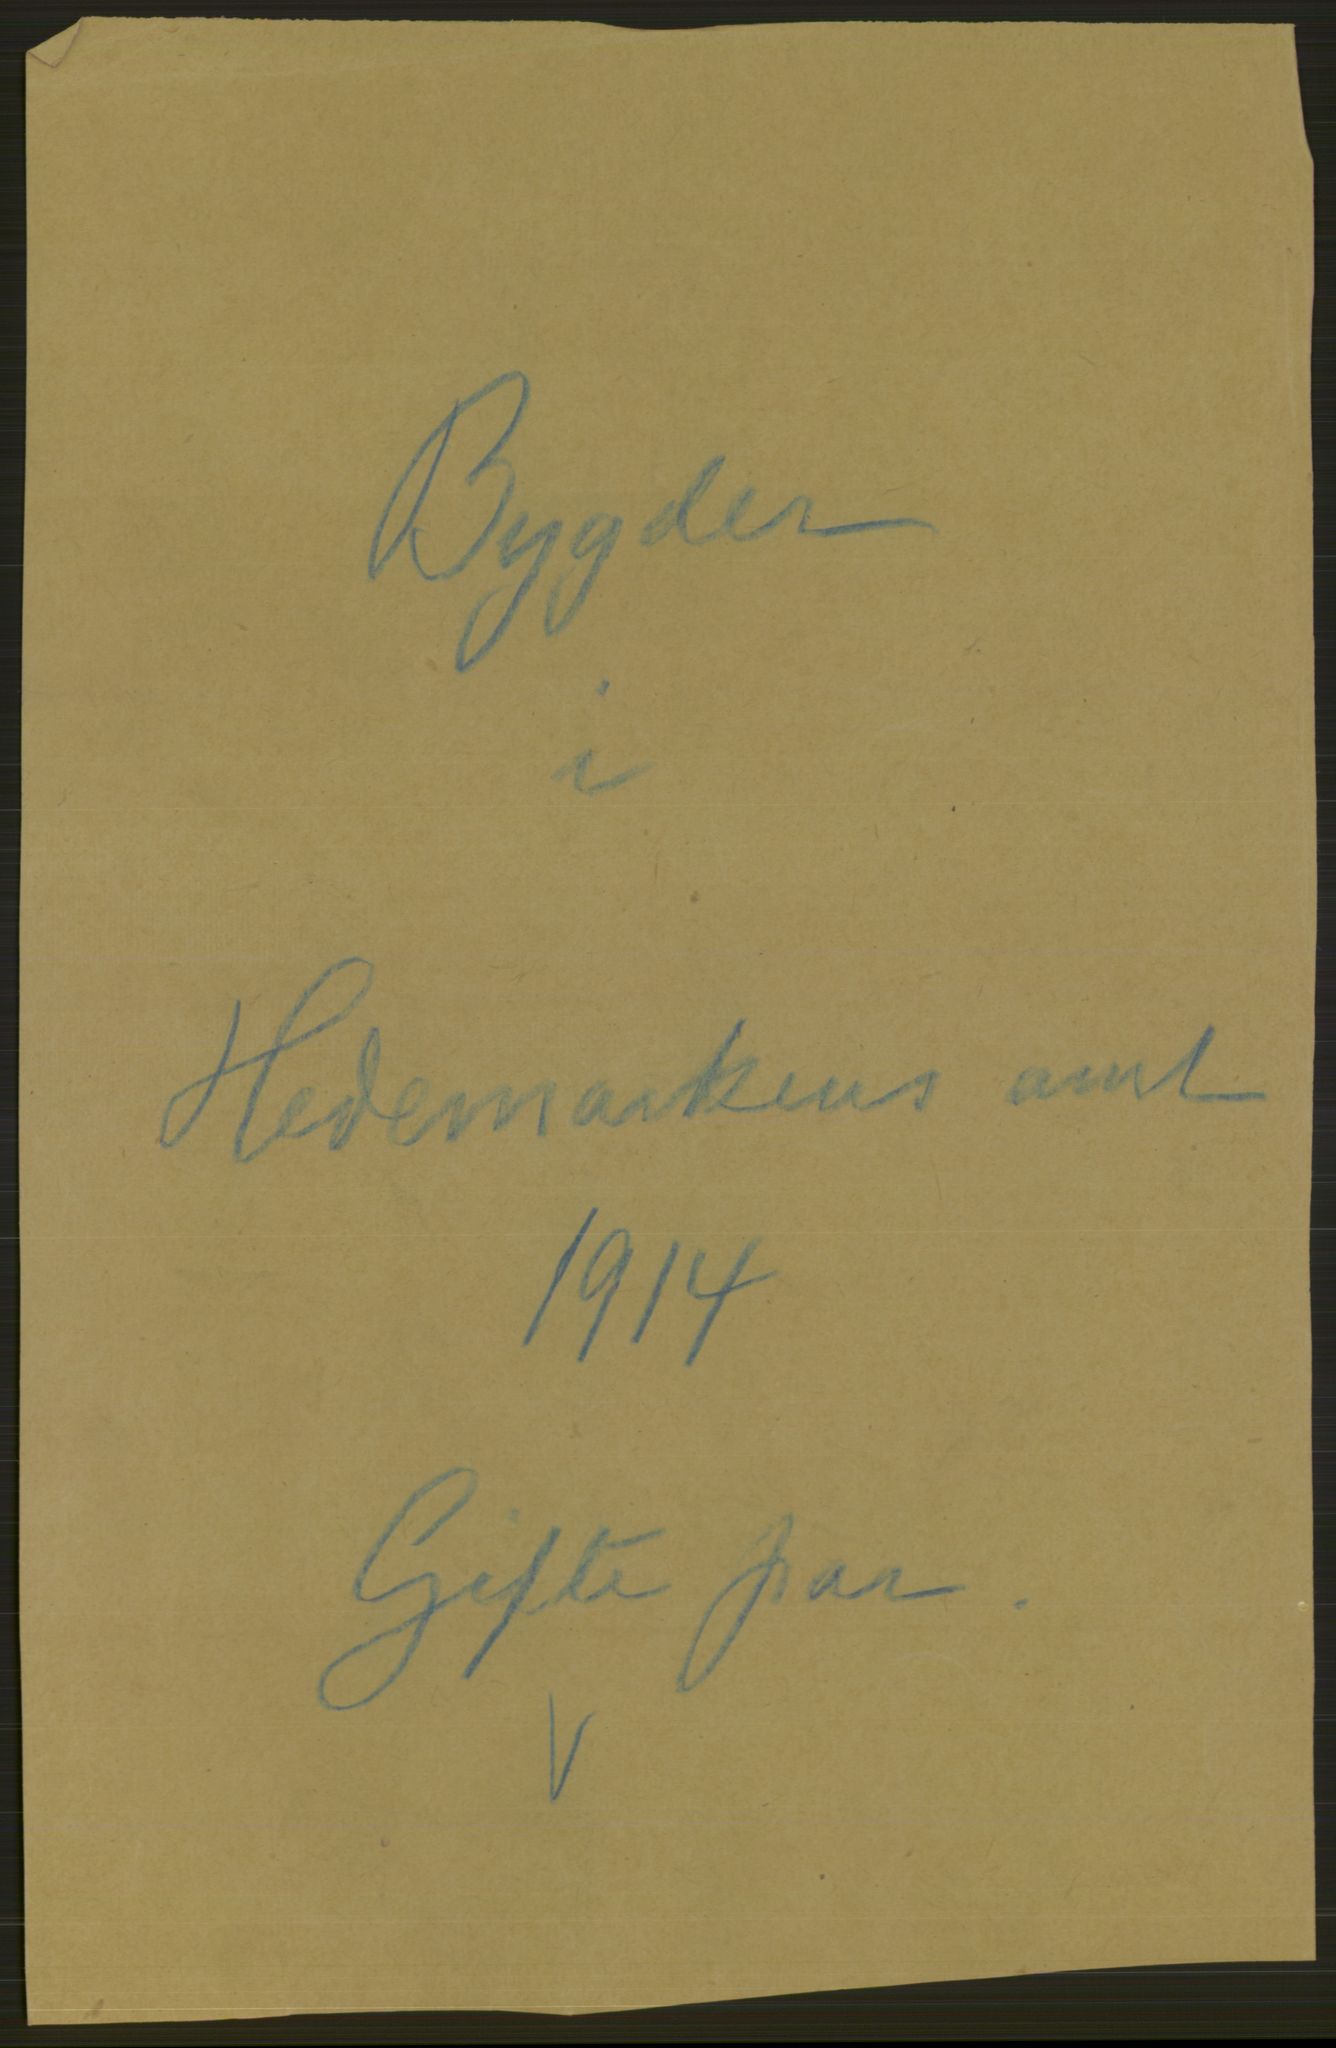 Bygder
i
Hedemarkens amt
1914
Gifte par.
V